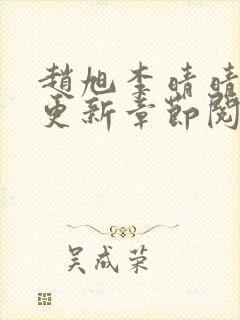 趙旭李晴晴
更新章節閱
吴成荣